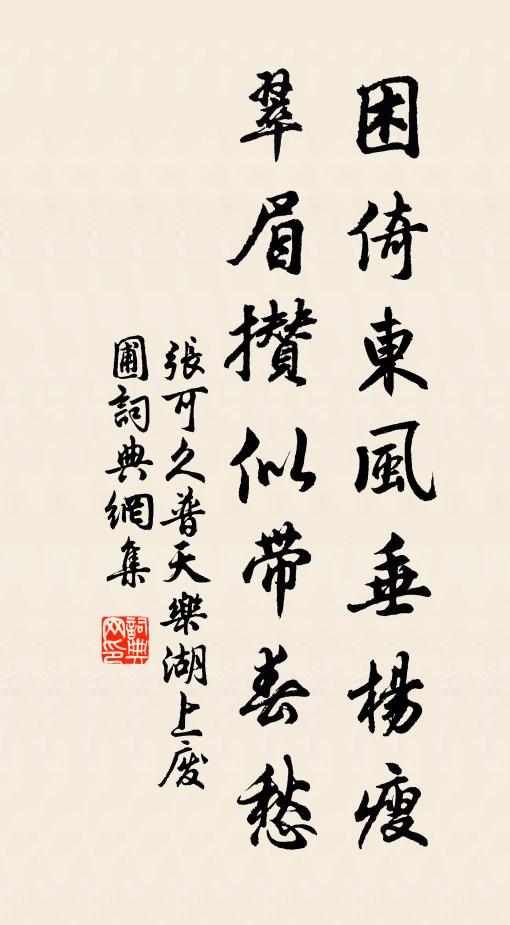 困倚東風垂楊瘦
翠眉攢似帶春愁
張可久普天樂湖上廢
圃詞典網集
詞典網印